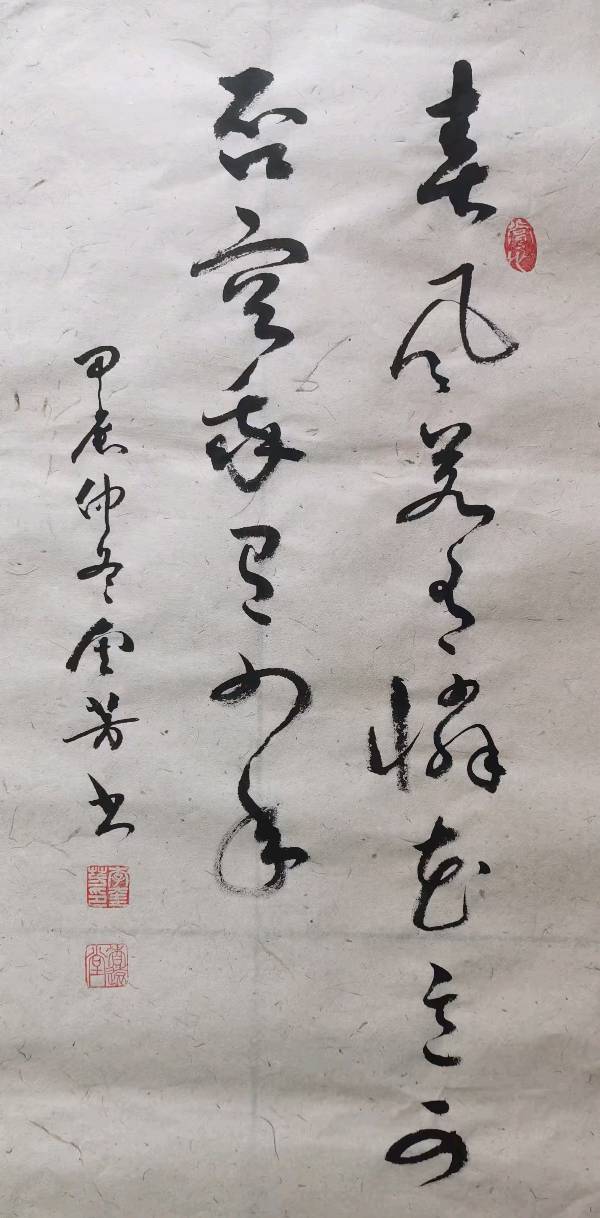 春风若有憐花意可
否容我再少年
甲辰仲冬雲芳书